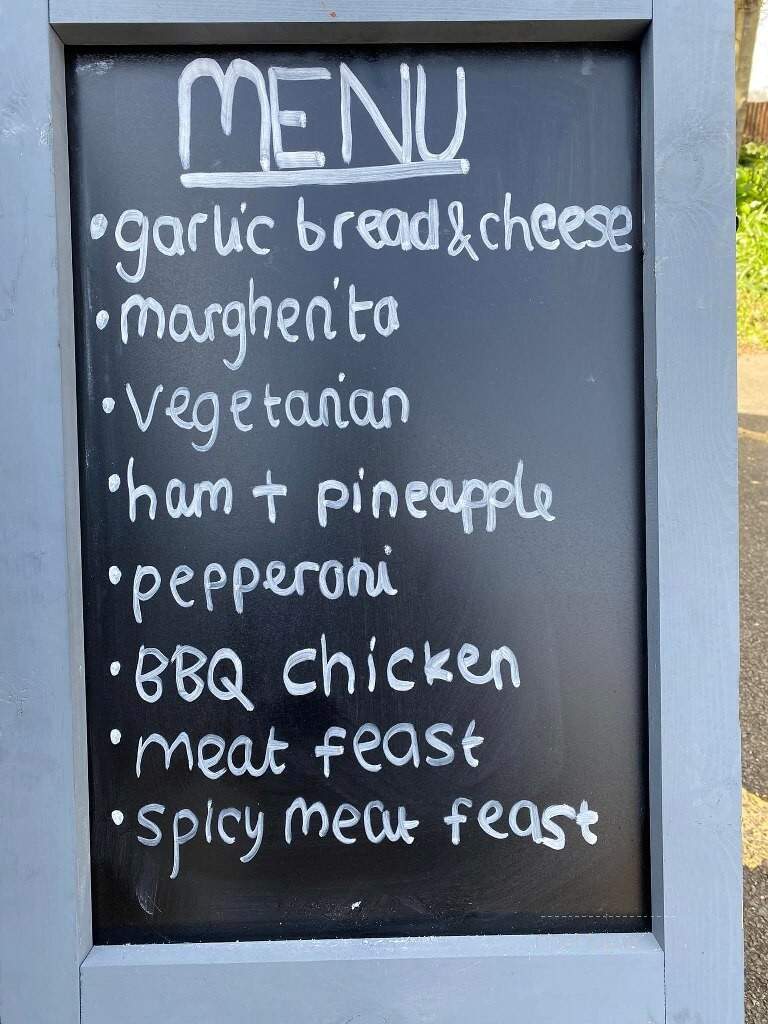 MENU
• garlic bread & cheese
• margherita
• vegetarian
• ham + pineapple
• pepperoni
• BBQ chicken
• meat feast
• spicy meat feast